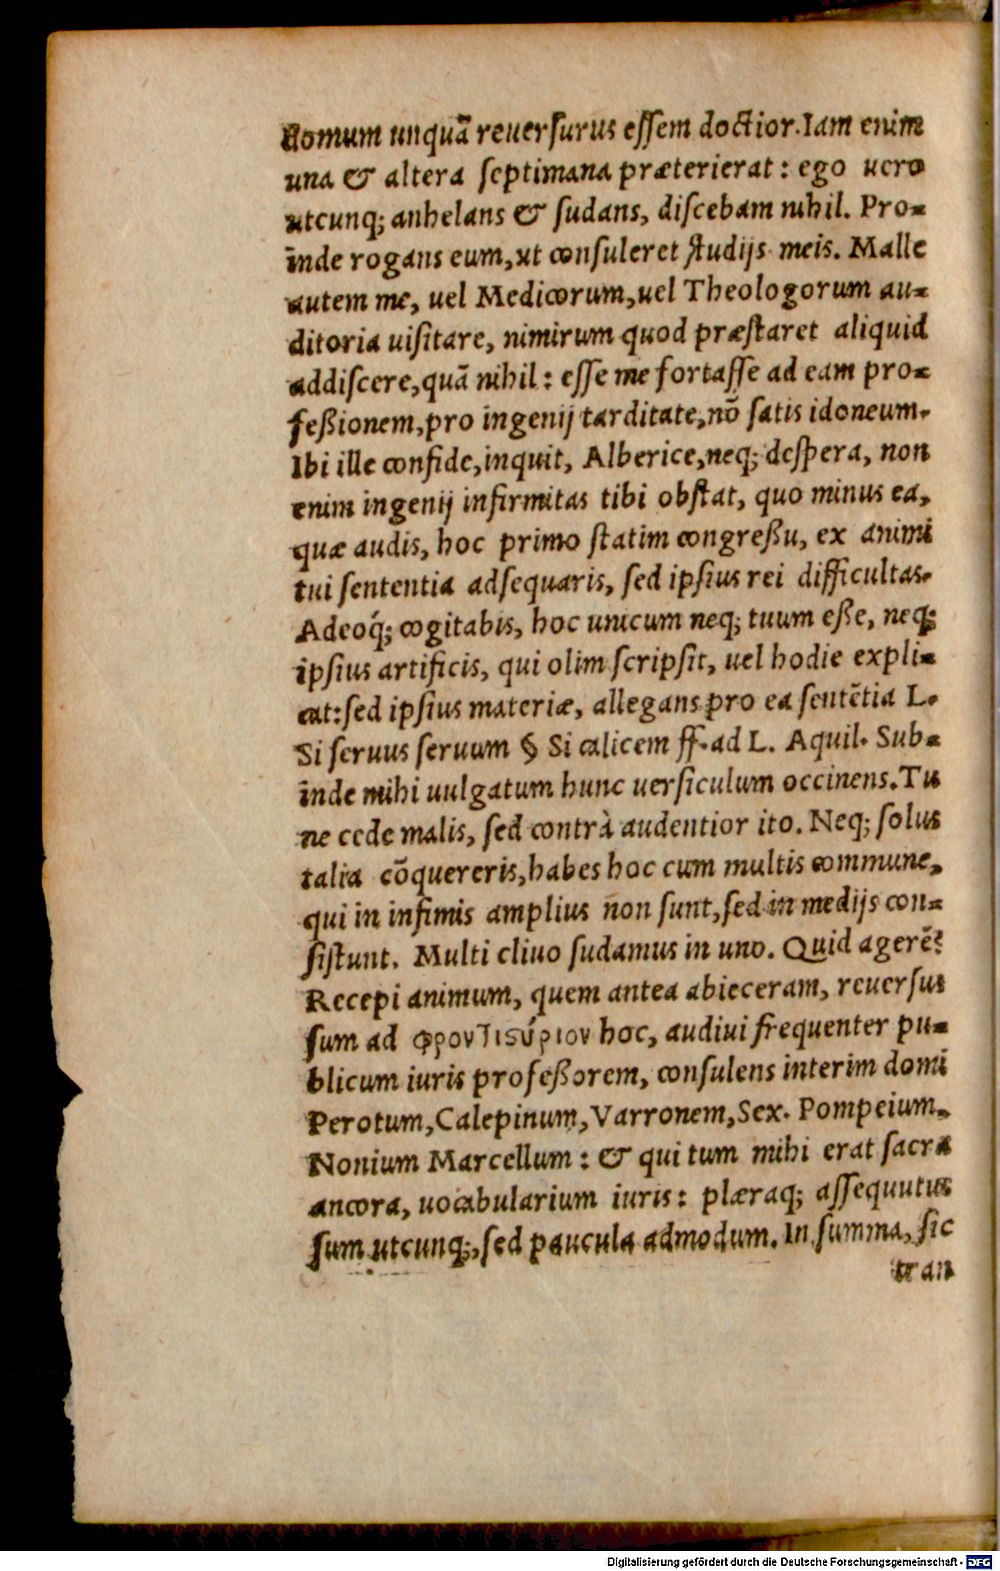 domum unquã reuersurus essem doctior. Iam enim
una & altera septimana præterierat: ego uero
utcunq; anhelans & sudans, discebam nihil. Pro-
inde rogans eum, ut consuleret studijs meis. Malle
autem me, uel Medicorum, uel Theologorum au-
ditoria uisitare, nimirum quod præstaret aliquid
addiscere, quã nihil: esse me fortasse ad eam pro-
feßionem, pro ingenij tarditate, nõ satis idoneum.
Ibi ille confide, inquit, Alberice, neq; despera, non
enim ingenij infirmitas tibi obstat, quo minus ea,
quæ audis, hoc primo statim congreßu, ex animi
tui sententia adsequaris, sed ipsius rei difficultas.
Adeoq́; cogitabis, hoc unicum neq; tuum eße, neq;
ipsius artificis, qui olim scripsit, uel hodie expli-
cat: sed ipsius materiæ, allegans pro ea sentẽtia L.
Si seruus seruum § Si calicem ff. ad L. Aquil. Sub-
inde mihi uulgatum hunc uersiculum occinens. Tu
ne cede malis, sed contrà audentior ito. Neq; solus
talia cõquereris, habes hoc cum multis commune,
qui in infimis amplius non sunt, sed in medijs con-
sistunt. Multi cliuo sudamus in uno. Quid agerẽ?
Recepi animum, quem antea abieceram, reuersus
sum ad φροντιςύριον hoc, audiui frequenter pu-
blicum iuris profeßorem, consulens interim domi
Perotum, Calepinum, Varronem, Sex. Pompeium,
Nonium Marcellum: & qui tum mihi erat sacra
ancora, uocabularium iuris: plæraq; assequutus
sum utcunq;, sed paucula admodum. In summa, sic
tran
Digitalisierung gefördert durch die Deutsche Forschungsgemeinschaft - DFG